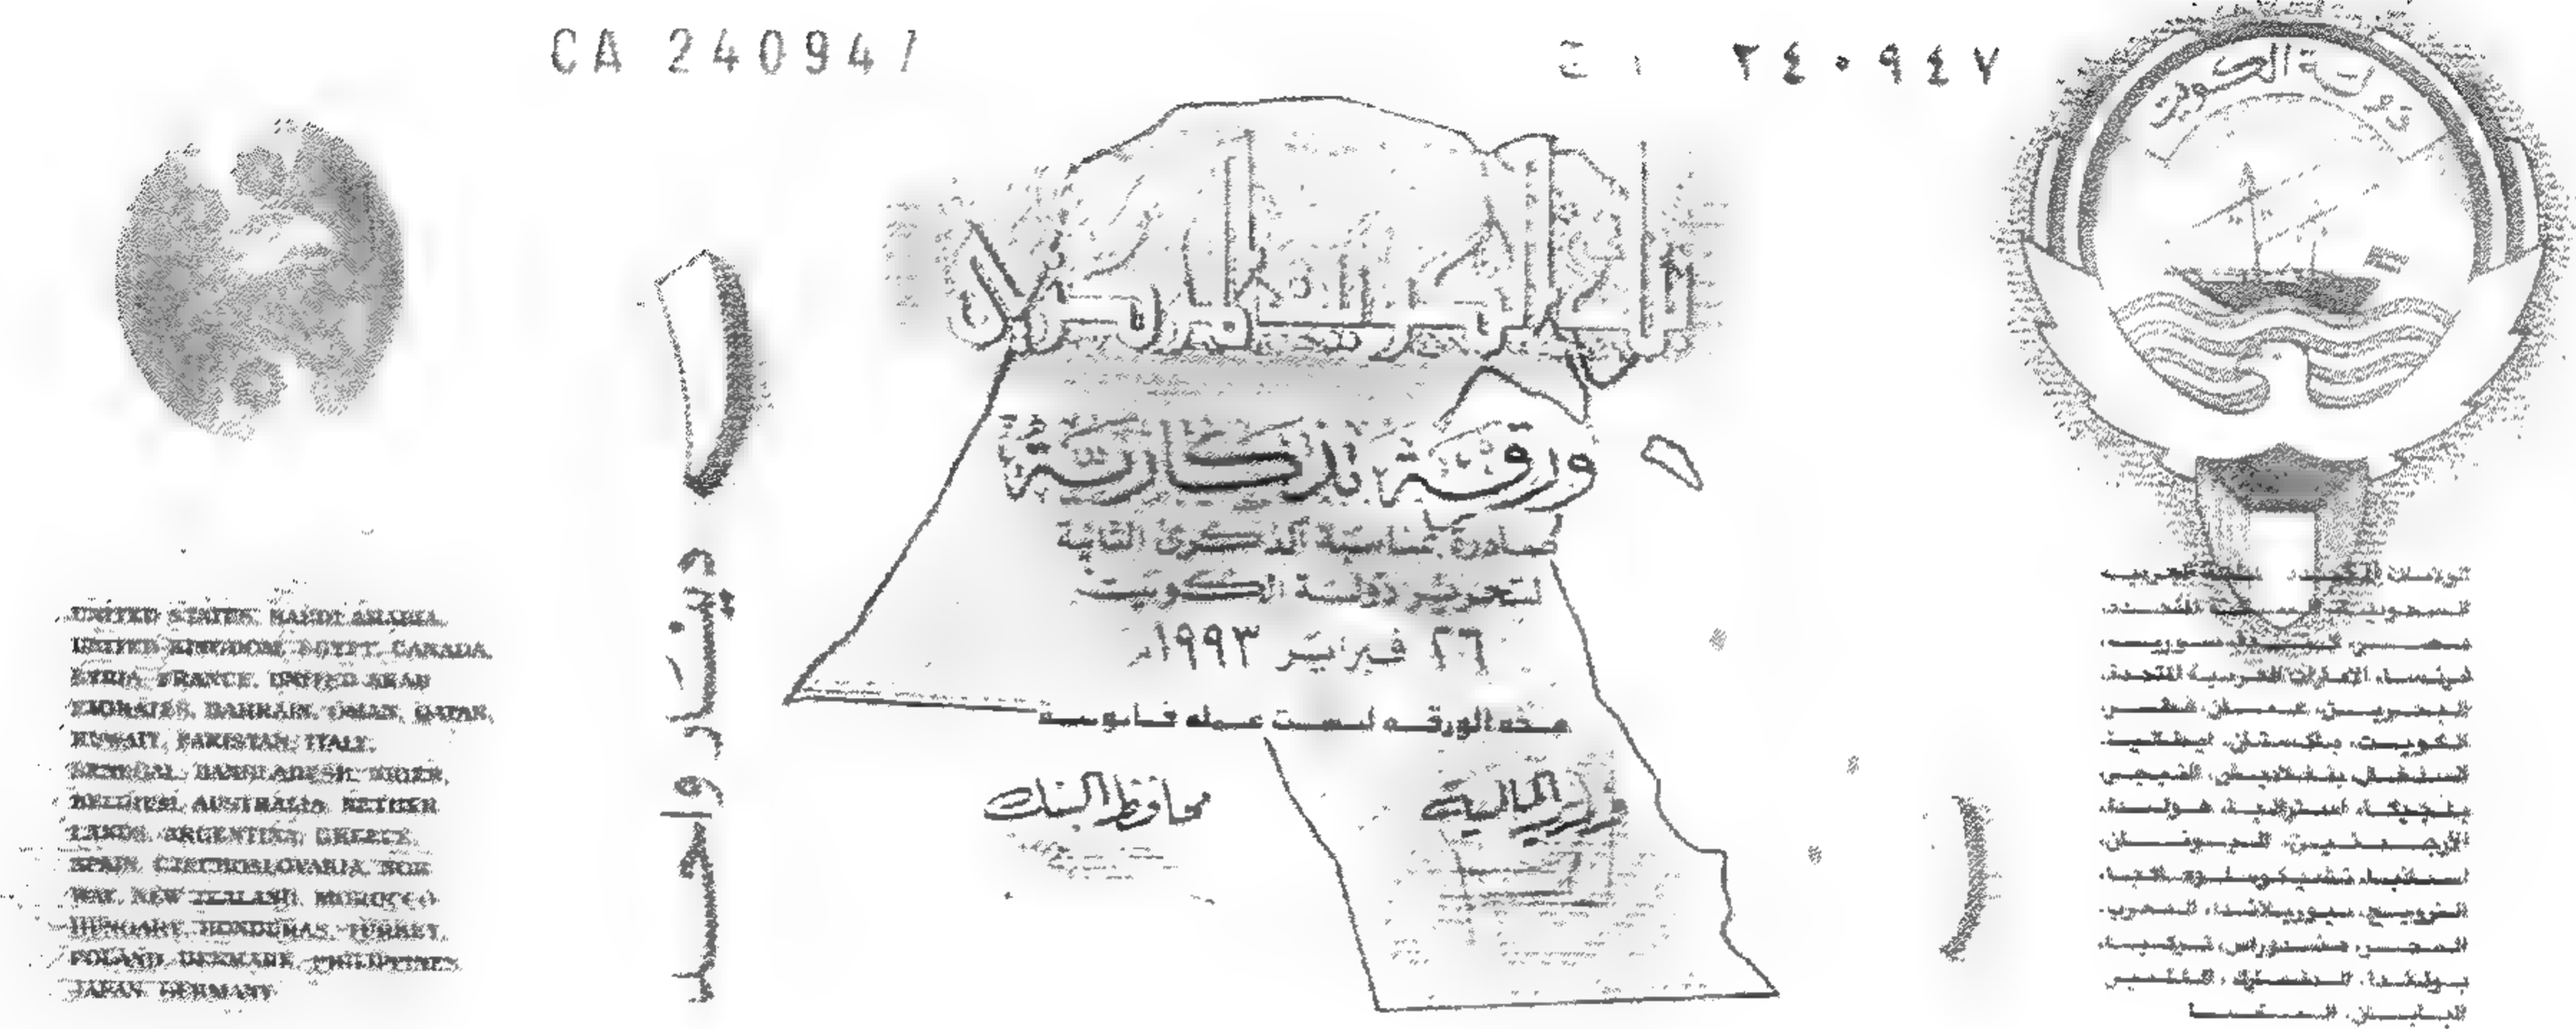 CA 240947
ج ا ٢٤٠٩٤٧
دولة الكويت
ورقة تذكارية
صادرة بمناسبة الذكرى الثانية
لتحرير دولة الكويت
٢٦ فبراير ١٩٩٣م
هذه الورقه ليست عمله قانونيه
محافظ البنك
وزير المالية
دينار واحد
UNITED STATES, SAUDI ARABIA,
UNITED KINGDOM, EGYPT, CANADA,
SYRIA, FRANCE, UNITED ARAB
EMIRATES, BAHRAIN, OMAN, QATAR,
KUWAIT, PAKISTAN, ITALY,
SENEGAL, BANGLADESH, NIGER,
BELGIUM, AUSTRALIA, NETHER
LANDS, ARGENTINA, GREECE,
SPAIN, CZECHOSLOVAKIA, NOR
WAY, NEW ZEALAND, MOROCCO
HUNGARY, HONDURAS, TURKEY,
POLAND, DENMARK, PHILIPPINES,
JAPAN, GERMANY
مصر، كندا، سوريا،
فرنسا، الامارات العربية المتحدة،
البحرين، عمان، قطر،
الكويت، باكستان، ايطاليا،
السنغال، بنغلاديش، النيجر،
بلجيكا، استراليا، هولندا،
الأرجنتين، اليونان،
اسبانيا، تشيكوسلوفاكيا،
النرويج، نيوزيلاندا، المغرب،
المجر، هندوراس، تركيا،
بولندا، الدنمارك، الفلبين،